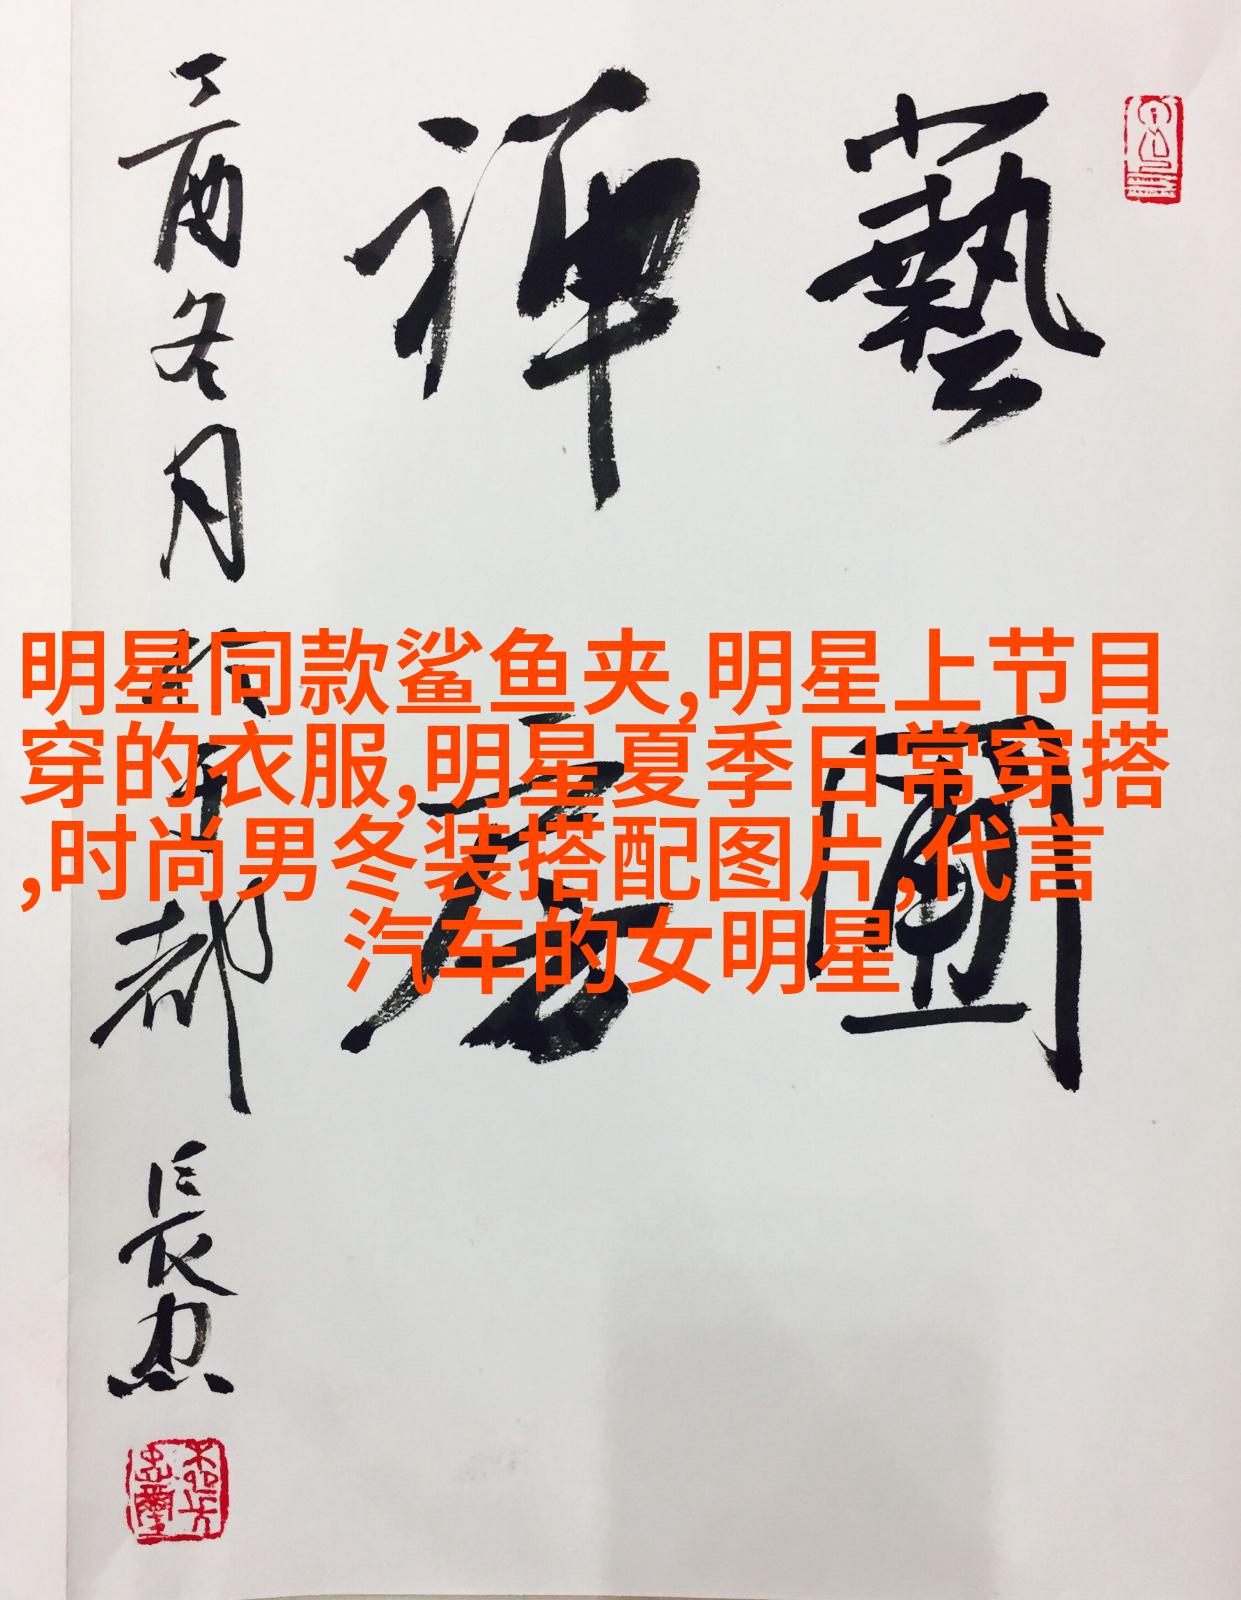 藝圃
禅房
丁酉冬月於成都
長忠
明星同款鲨鱼夹,明星上节目
穿的衣服,明星夏季日常穿搭
,时尚男冬装搭配图片,代言
汽车的女明星